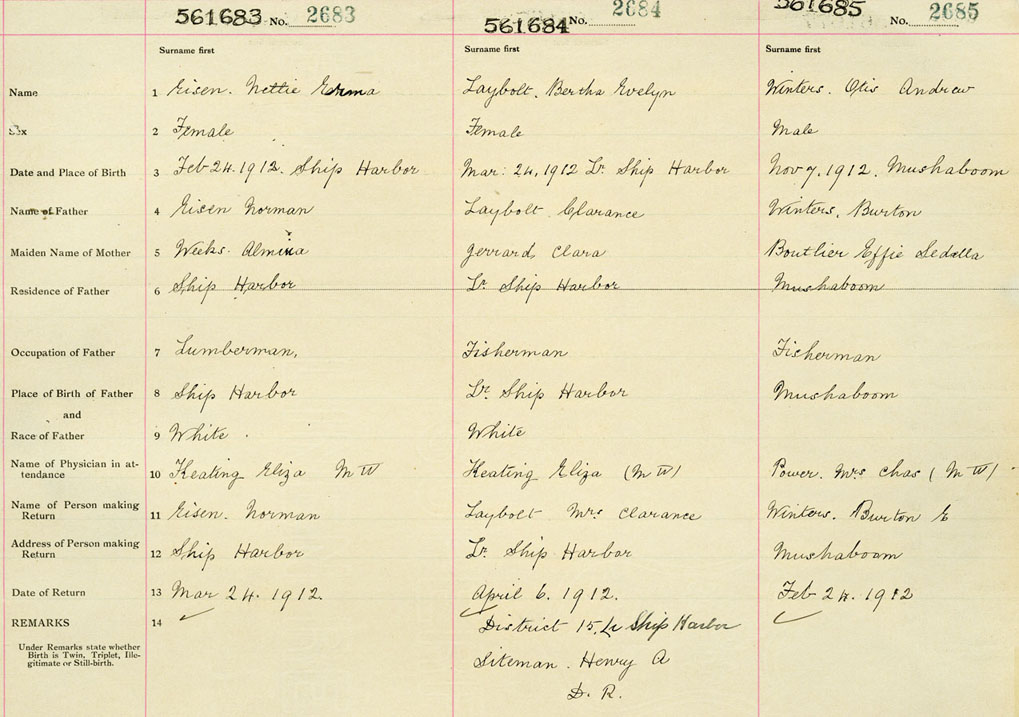 561683 No. 2683 561684 No. 2684 561685 No. 2685
Surname first Surname first Surname first
Name 1 Eisen. Nettie Erma Laybolt. Bertha Evelyn Winters. Otis Andrew
Sex 2 Female Female Male
Date and Place of Birth 3 Feb 24. 1912. Ship Harbor Mar: 24, 1912 Lr. Ship Harbor Nov 7. 1912. Mushaboom
Name of Father 4 Eisen Norman Laybolt Clarance Winters, Burton
Maiden Name of Mother 5 Weeks. Almina Gerrard, Clara Boutlier Effie Sedella
Residence of Father 6 Ship Harbor Lr. Ship Harbor Mushaboom
Occupation of Father 7 Lumberman, Fisherman Fisherman
Place of Birth of Father 8 Ship Harbor Lr. Ship Harbor Mushaboom
and
Race of Father 9 White. White
Name of Physician in at-
tendance 10 Keating Eliza MW Keating Eliza (MW) Power. Mrs Chas (MW)
Name of Person making
Return 11 Eisen. Norman Laybolt Mrs Clarance Winters. Burton E
Address of Person making
Return 12 Ship Harbor Lr. Ship Harbor Mushaboom
Date of Return 13 Mar 24. 1912. April 6. 1912. Feb 24. 1912
REMARKS 14 District 15, Lr Ship Harbor
Under Remarks state whether
Birth is Twin, Triplet, Ille-
gitimate or Still-birth.
Siteman. Henry A
D. R.